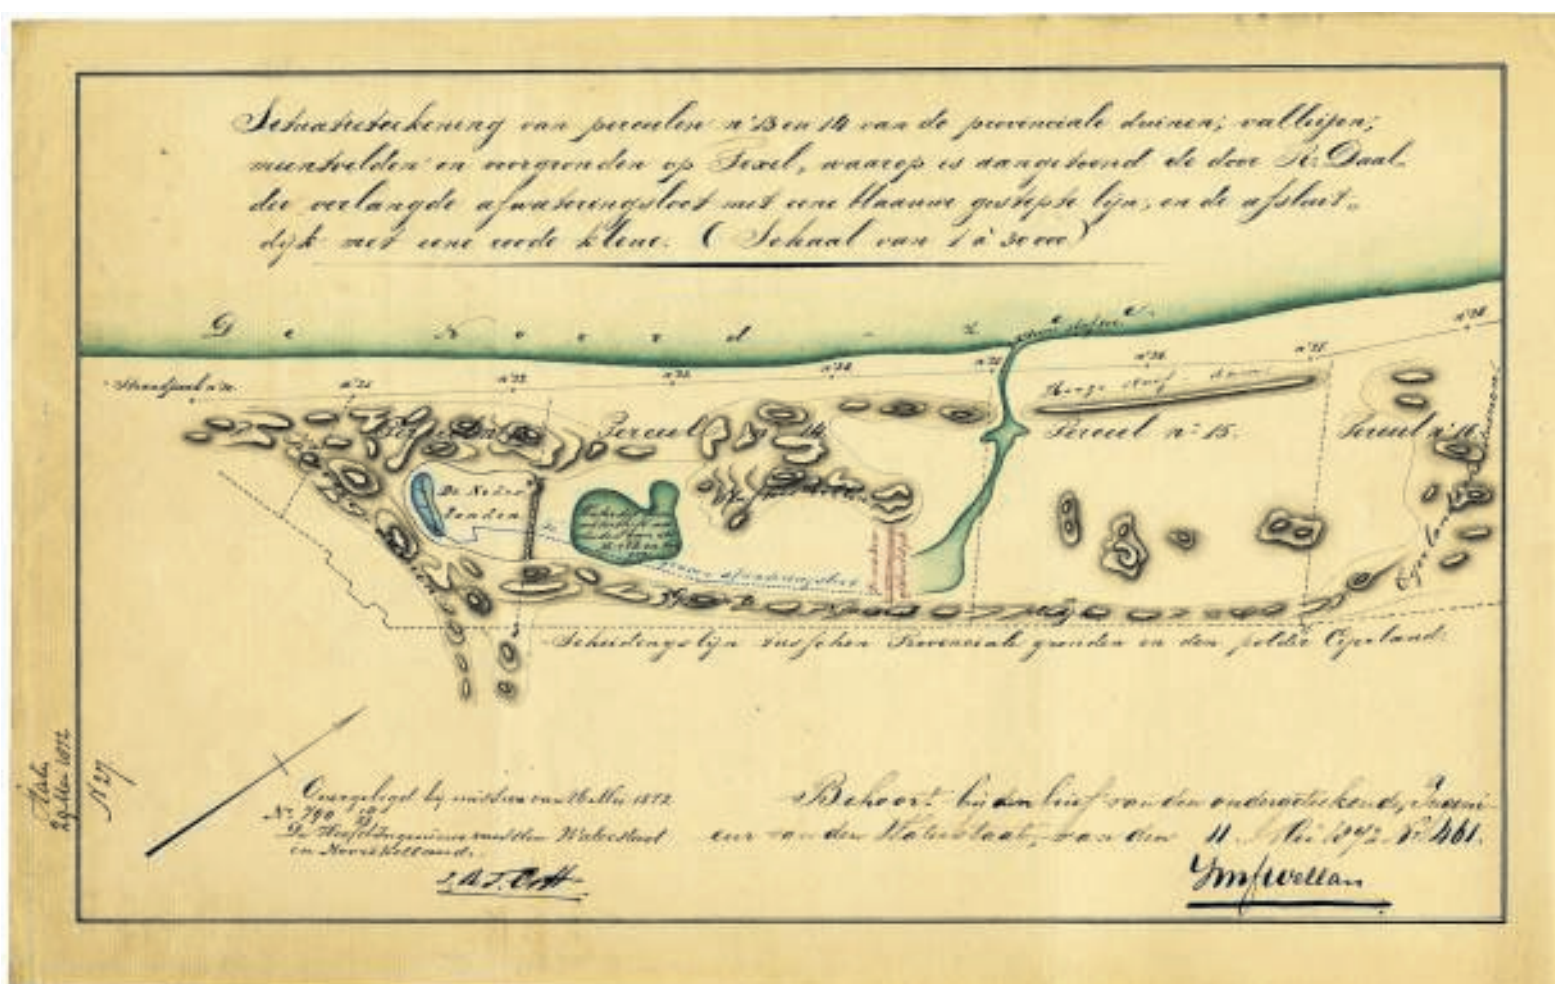 Situatieteekening van perceelen nº 13 en 14 van de provinciale duinen, valleijen,
meentvelden en voorgronden op Texel, waarop is aangetoond de door R. Daal-
der verlangde afwateringsloot met eene blaauwe gestipte lijn, en de afsluit-
dijk met eene roode kleur. (Schaal van 1 à 30000)
De Noord - Zee
Strandpaal nº 20.
nº 21
nº 22
nº 23
nº 24
nº 25
nº 26
nº 28
Hooge stuif dam
Perceel nº 14
Perceel nº 15.
Perceel nº 16
De Neder
landen
afwateringsloot
Eijerland
Scheidingslijn tusschen Provinciale gronden en den polder Eijerland.
Staten
29 Mei 1872
N 27
Overgelegd bij missive van 16 Mei 1872
Nº 790
De Hoofdingenieur van den Waterstaat
in Noordholland.
Behoort bij den brief van den ondergeteekende, Ingeni-
eur van den Waterstaat, van den 11 Mei 1872 Nº 461.